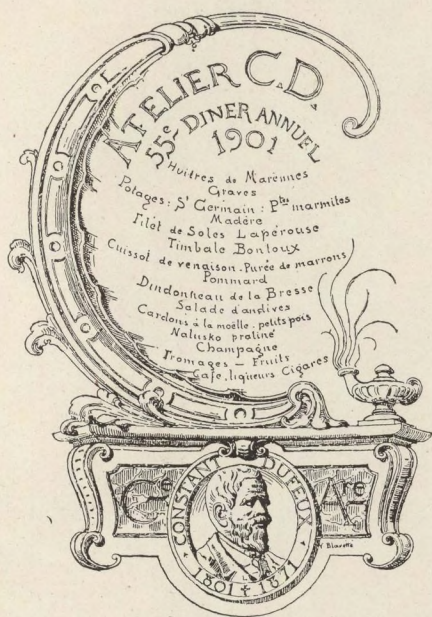 ATELIER C.D.
55e DINER ANNUEL
1901
Huîtres de Marennes
Graves
Potages: St Germain: Ptes marmites
Madère
Filet de Soles Lapérouse
Timbale Bontoux
Cuissot de venaison. Purée de marrons
Pommard
Dindonneau de la Bresse
Salade d'andives
Cardons à la moëlle. petits pois
Nalusko praliné
Champagne
Fromages — Fruits
Café, liqueurs Cigares
CONSTANT DUFEUX
1801 † 1871
Are
V Blavette